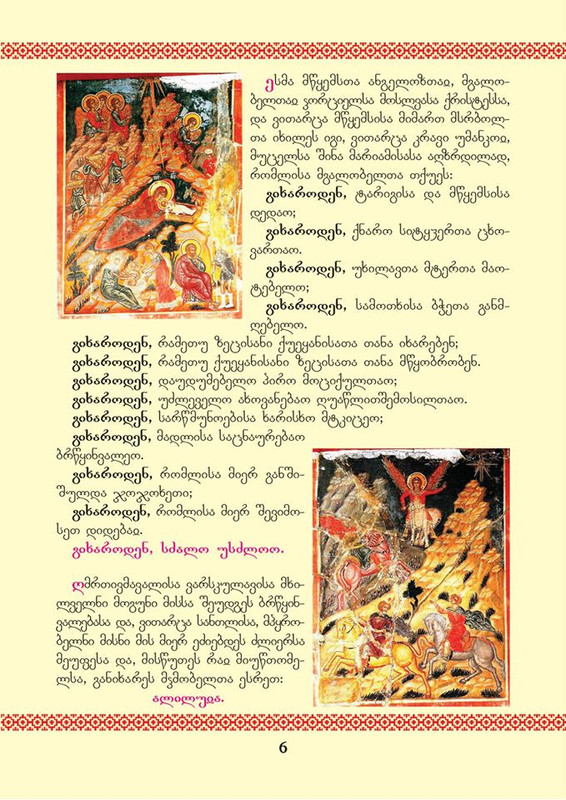 ესმა მწყემსთა ანგელოზთაჲ, მგალო-
ბელთაჲ ჴორციელსა მოსლვასა ქრისტესსა,
და ვითარცა მწყემსისა მიმართ მსრბოლ-
თა იხილეს იგი, ვითარცა კრავი უმანკოჲ,
მუცელსა შინა მარიამისასა აღზრდილად,
რომლისა მგალობელთა თქუეს:
გიხაროდენ, ტარიგისა და მწყემსისა
დედაო;
გიხაროდენ, ქნარო სიტყჳერთა ცხო-
ვართაო.
გიხაროდენ, უხილავთა მტერთა მაო-
ტებელო;
გიხაროდენ, სამოთხისა ბჭეთა განმ-
ღებელო.
გიხაროდენ, რამეთუ ზეცისანი ქუეყანისათა თანა იხარებენ;
გიხაროდენ, რამეთუ ქუეყანისანი ზეცისათა თანა მწყობრობენ.
გიხაროდენ, დაუდუმებელო პირო მოციქულთაო;
გიხაროდენ, უძლეველო ახოვანებაო ღუაწლითშემოსილთაო.
გიხაროდენ, სარწმუნოებისა ხარისხო მტკიცეო;
გიხაროდენ, მადლისა საცნაურებაო
ბრწყინვალეო.
გიხაროდენ, რომლისა მიერ განში-
შულდა ჯოჯოხეთი;
გიხაროდენ, რომლისა მიერ შევიმო-
სეთ დიდებაჲ.
გიხაროდენ, სძალო უსძლოო.
ღმრთივმავალისა ვარსკულავისა მხი-
ლველნი მოგუნი მისსა შეუდგეს ბრწყინ-
ვალებასა და, ვითარცა სანთლისა, მპყრო-
ბელნი მისნი მის მიერ ეძიებდეს ძლიერსა
მეუფესა და, მისწუთეს რაჲ მიუწთომე-
ლსა, განიხარეს მჴმობელთა ესრეთ:
ალილუჲა.
6